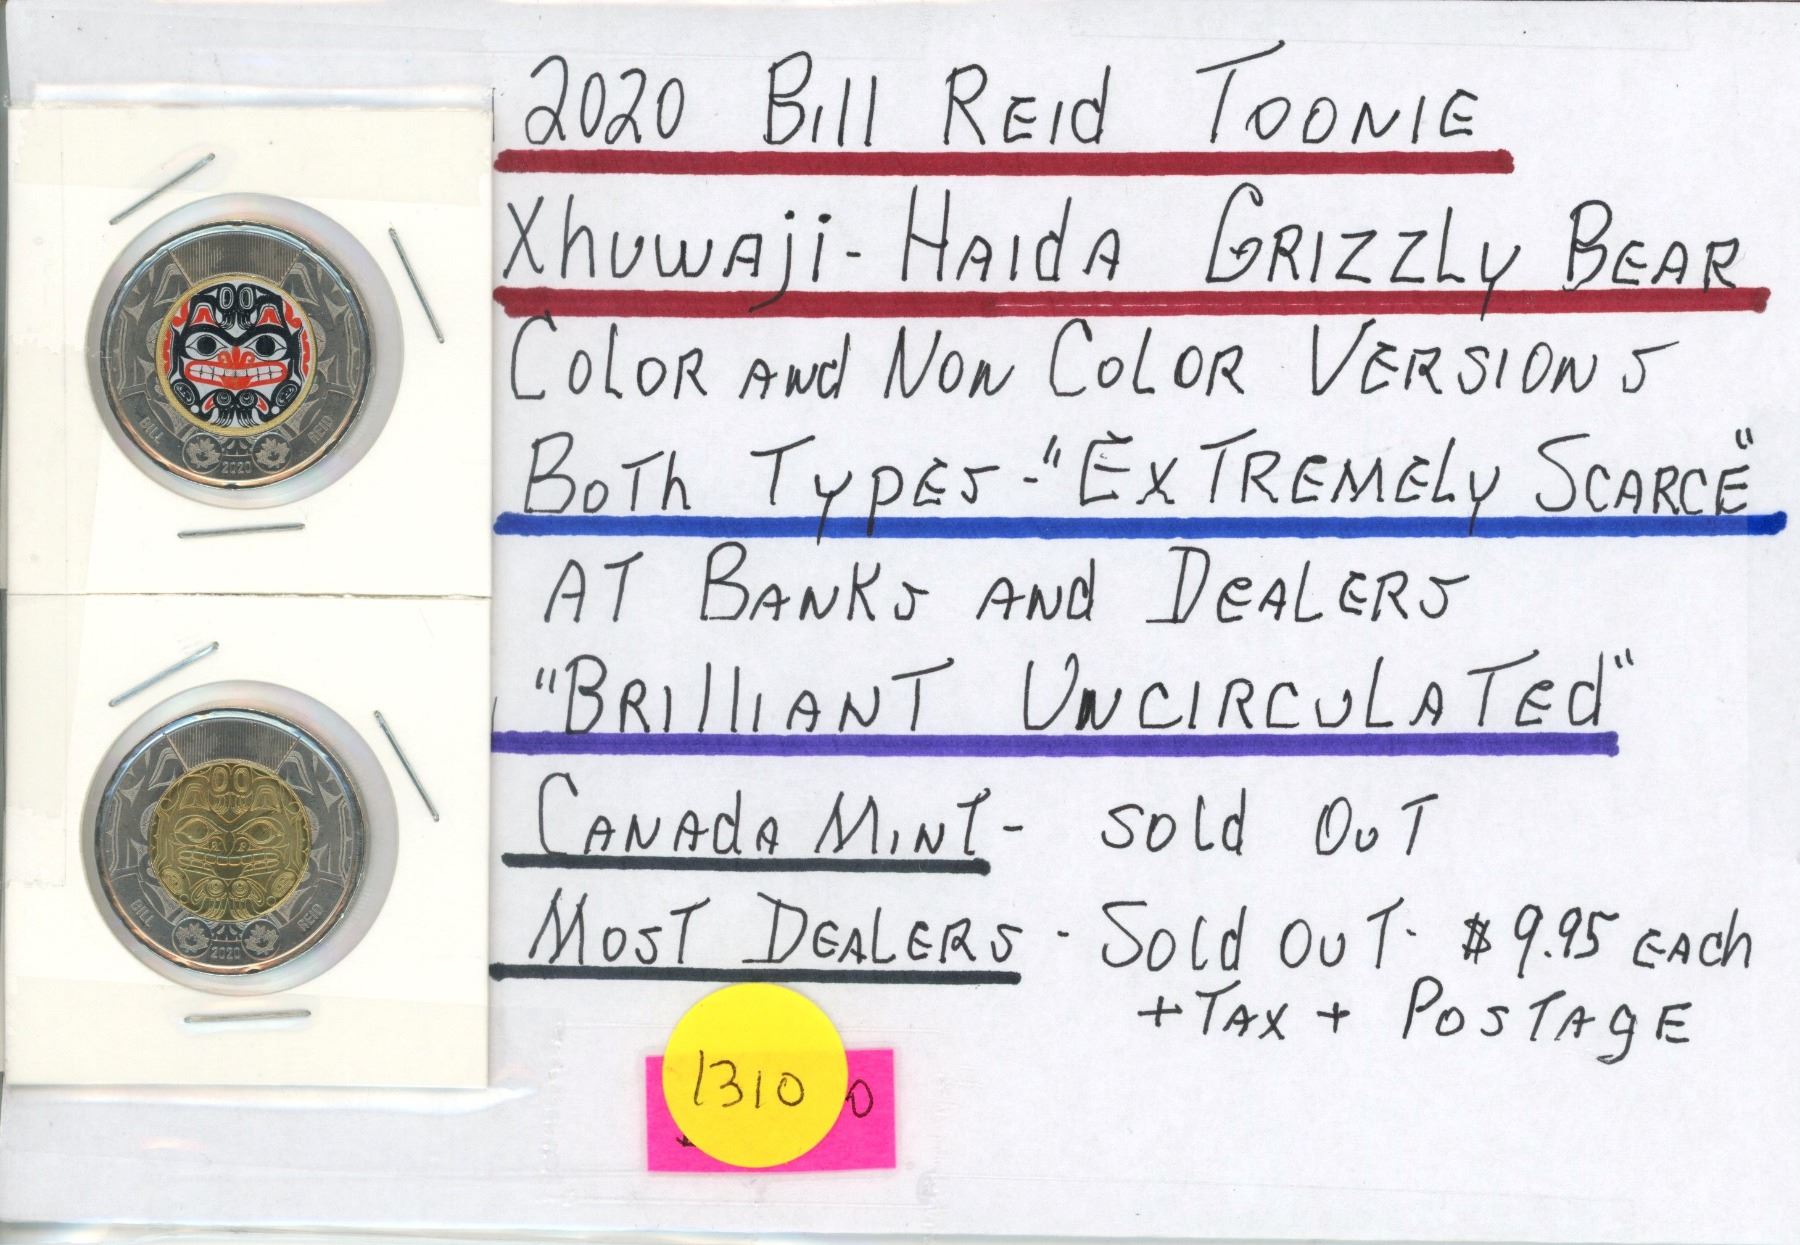 2020 Bill REId TOONIE
Xhuwaji - HAIdA GRIZZLy BEAR
COLOR ANd NON COLOR VERSIONS
BOTh TypES - "ExTREMELy SCARCE"
AT BANKS ANd DEALERS
"BRIllIANT UNCIRCULATEd"
CANAdA MINT - SOld OUT
MOST DEALERS - SOld OUT - $9.95 EACh
+ TAX + POSTAgE
1310
0
BILL REID
2020
BILL REID
2020